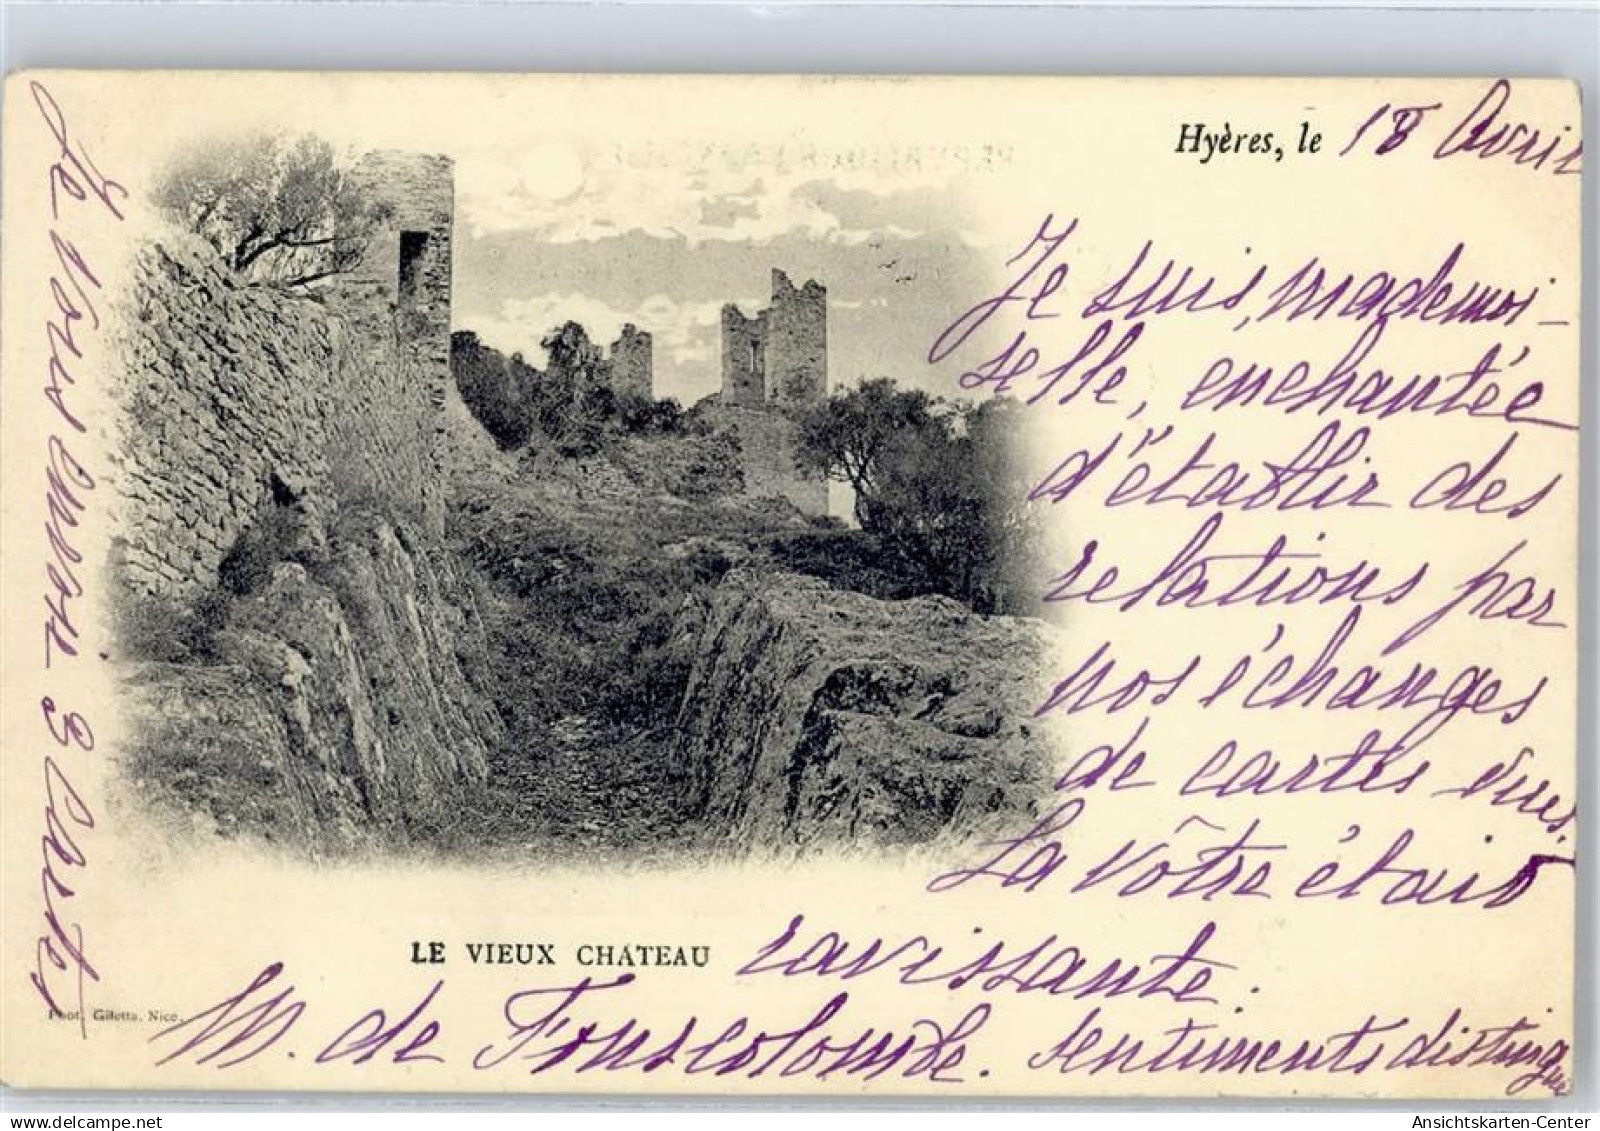 Hyères, le 18 Avril
Je suis, mademoi-
selle, enchantée
d'établir des
relations par
nos échanges
de cartes vues.
La vôtre était
ravissante.
sentiments distingués
M. de Fonscolombe.
LE VIEUX CHÂTEAU
Phot. Giletta. Nice.
Je vous envoie 3 cartes
Ansichtskarten-Center